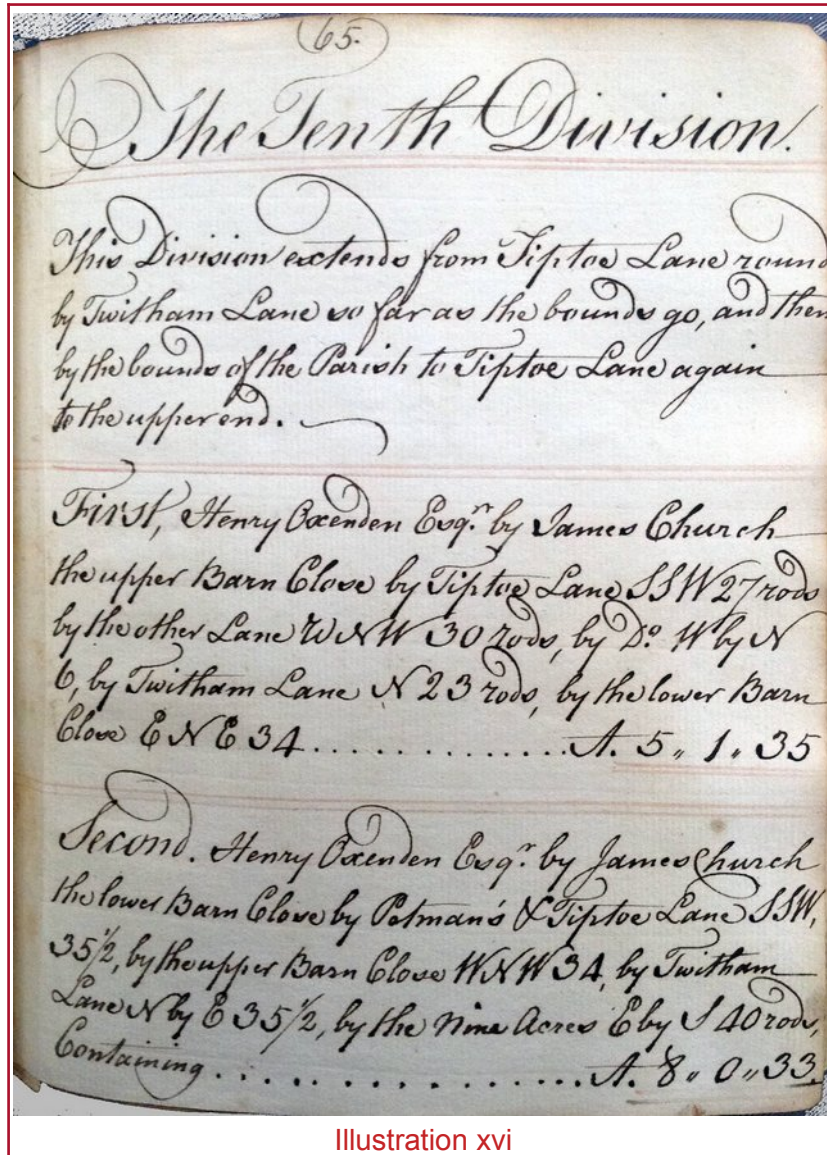 65.
The Tenth Division.
This Division extends from Tiptoe Lane round
by Twitham Lane so far as the bounds go, and then
by the bounds of the Parish to Tiptoe Lane again
to the upper end.
First, Henry Oxenden Esqr. by James Church
the upper Barn Close by Tiptoe Lane SSW 27 rods
by the other Lane WNW 30 rods, by Do. W by N
6, by Twitham Lane N 23 rods, by the lower Barn
Close ENE 34 .............. A. 5 " 1 " 35
Second. Henry Oxenden Esqr. by James Church
the lower Barn Close by Petman's & Tiptoe Lane SSW,
35 1/2, by the upper Barn Close WNW 34, by Twitham
Lane N by E 35 1/2, by the Nine Acres E by S 40 rods,
Containing .................. A. 8 " 0 " 33.
Illustration xvi